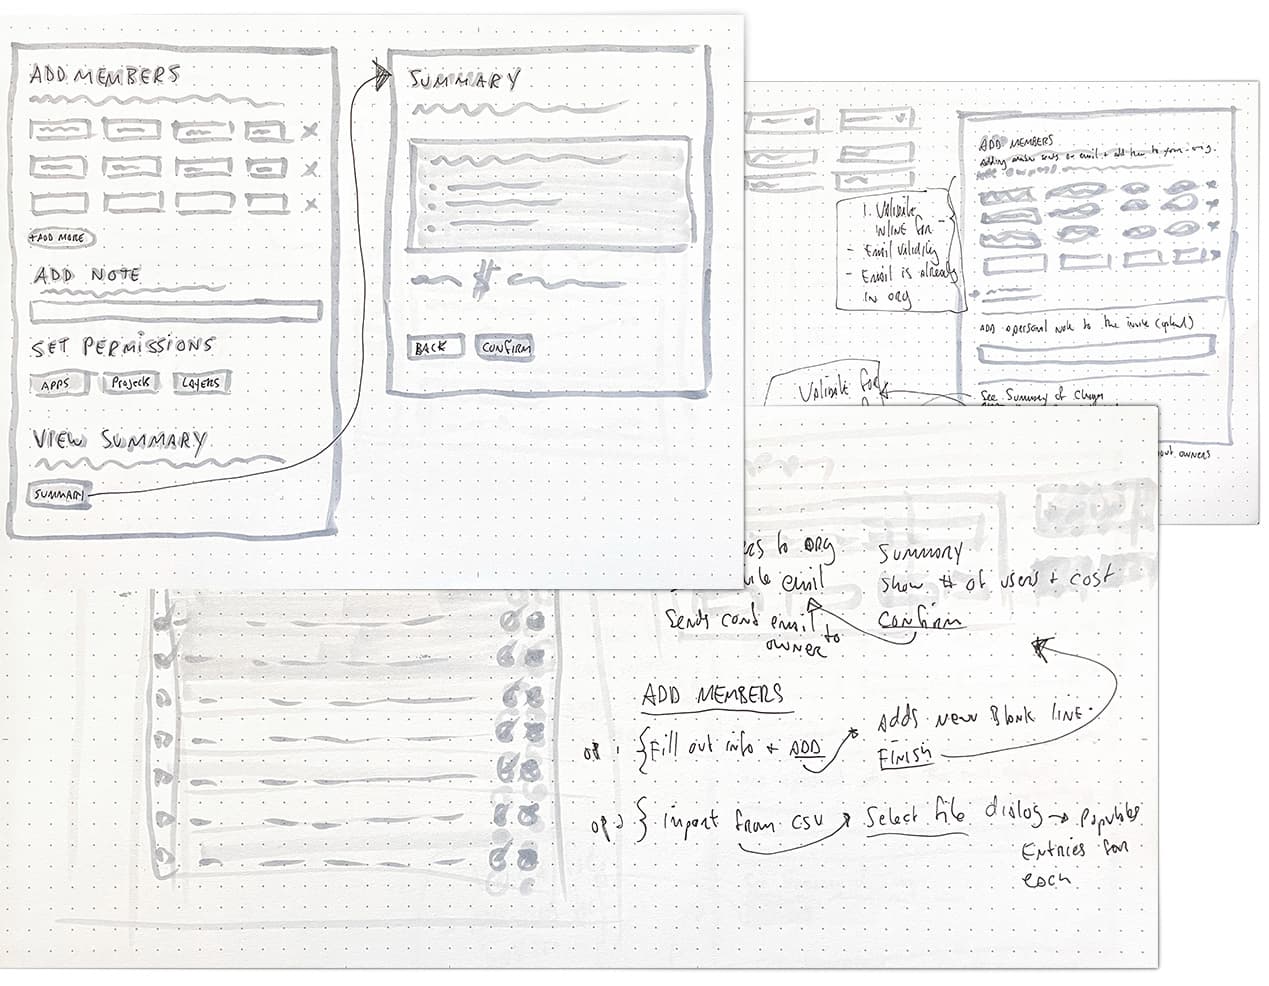 ADD MEMBERS
+ADD MORE
ADD NOTE
SET PERMISSIONS
APPS
Projects
LAYERS
VIEW SUMMARY
SUMMARY
SUMMARY
$
BACK
CONFIRM
1. Validate
INLINE FOR
- Email validity
- Email is already
IN ORG
Validate for
ADD MEMBERS
Adding sends an email + add them to your org.
ADD a personal note to the invite
See Summary of
owners
to org
email
Sends conf email to
OWNER
SUMMARY
Show # of users + cost
Confirm
ADD MEMBERS
op 1 { Fill out info + ADD
Adds new Blank line.
FINISH
op 2 } import from CSV
Select file dialog → Populates
Entries for
each